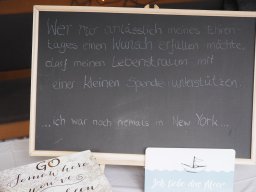 Wer mir anlässlich meines Ehren-
tages einen Wunsch erfüllen möchte,
darf meinen Lebenstraum mit
einer kleinen Spende unterstützen.
...ich war noch niemals in New York...
GO
Somewhere
you've
Ich liebe das Meer